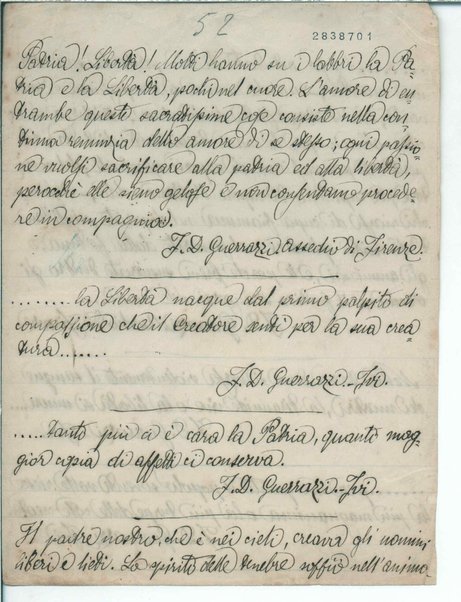 52
2838701
Patria! Libertà! Molti hanno su i labbri la Pa-
tria e la Libertà, pochi nel cuore. L'amore di en-
trambe queste sacratissime cose consiste nella con-
tinua renunzia dello amore di se stesso; ogni passio-
ne vuolsi sacrificare alla patria ed alla libertà,
perocchè elle sieno gelose e non consentano procede-
re in compagnia.
F. D. Guerrazzi. Assedio di Firenze.
........la Libertà nacque dal primo palpito di
compassione che il Creatore sentì per la sua crea-
tura.......
F. D. Guerrazzi - Ivi.
.....tanto più ci è cara la Patria, quanto mag-
gior copia di affetti ci conserva.
F. D. Guerrazzi - Ivi.
Il padre nostro, che è nei cieli, creava gli uomini
liberi e lieti. Lo spirito delle tenebre soffiò nell'animo